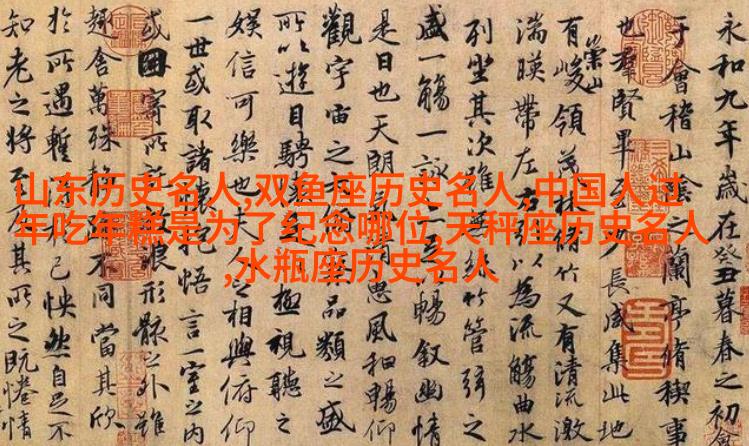 山东历史名人,双鱼座历史名人,中国人过
年吃年糕是为了纪念哪位,天秤座历史名人
,水瓶座历史名人
永和九年歲在癸丑暮春之初會
于會稽山陰之蘭亭脩稧事
也羣賢畢至少長咸集此地
有崇山峻領茂林脩竹又有清流激
湍暎帶左右以為流觴曲水
列坐其次雖竹管弦之
盛一觴一詠暢敘幽情
是日也天朗惠風和暢仰
觀宇宙之品類之盛
所以遊目騁極視聽之
娛信可樂也夫人之相與俯仰
一世或取諸懷抱悟言一室之內
或因寄所浪形骸之外雖
趣舍萬殊靜不同當其欣
於所遇暫己怏然自足不
知老之將至及其所之既惓情